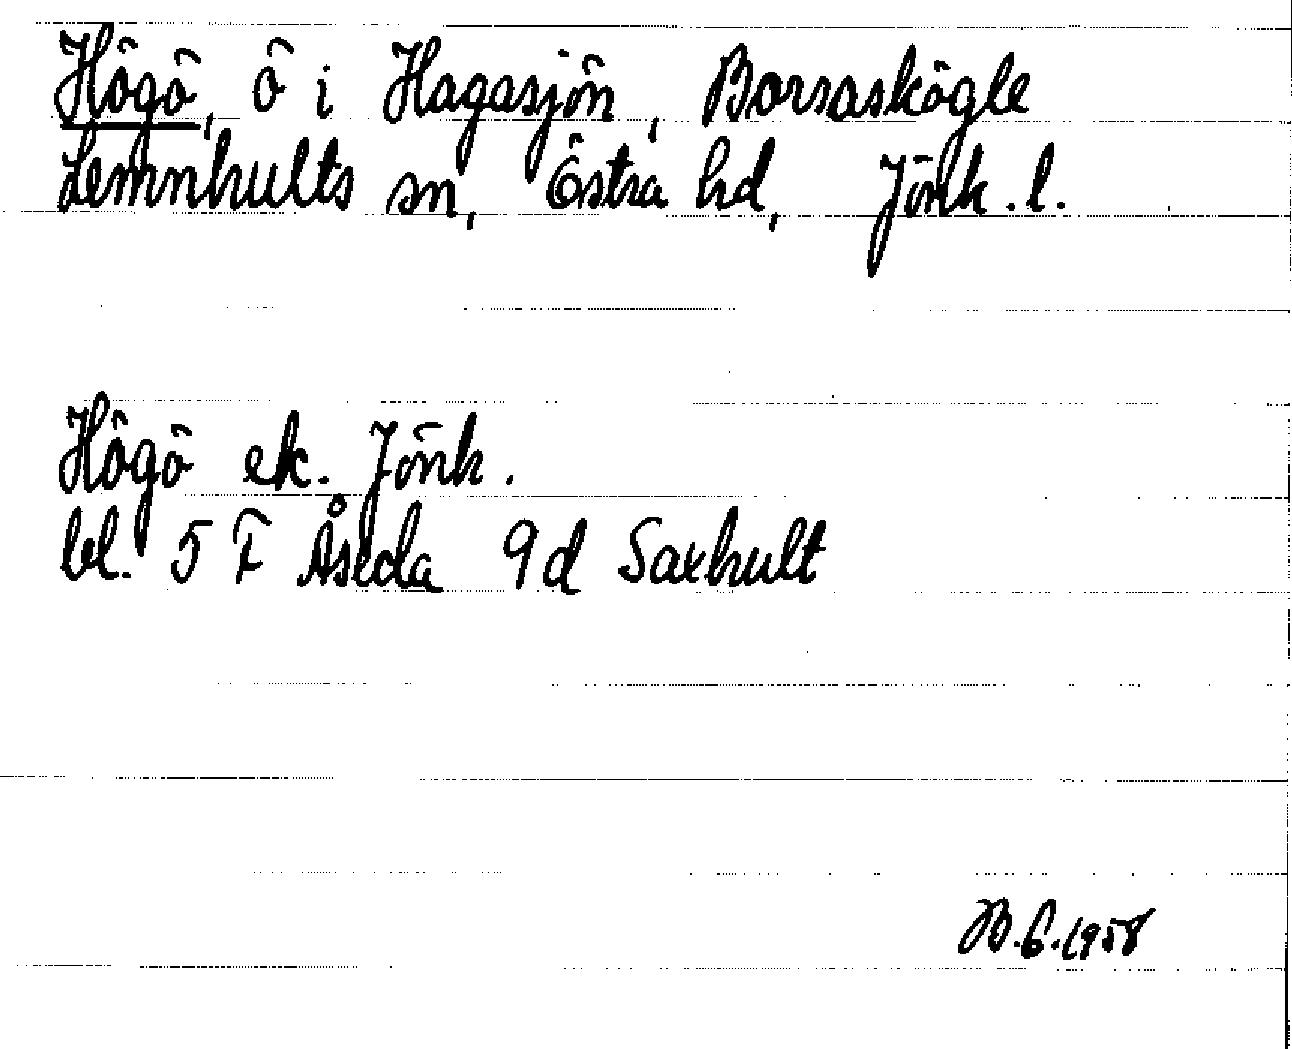 Högö, ö i Hagasjön, Borsaskögle
Lemnhults sn, Östra hd, Jönk. l.
Högö ek. Jönk.
bl. 5 F Åseda 9d Saxhult
B.G.1958